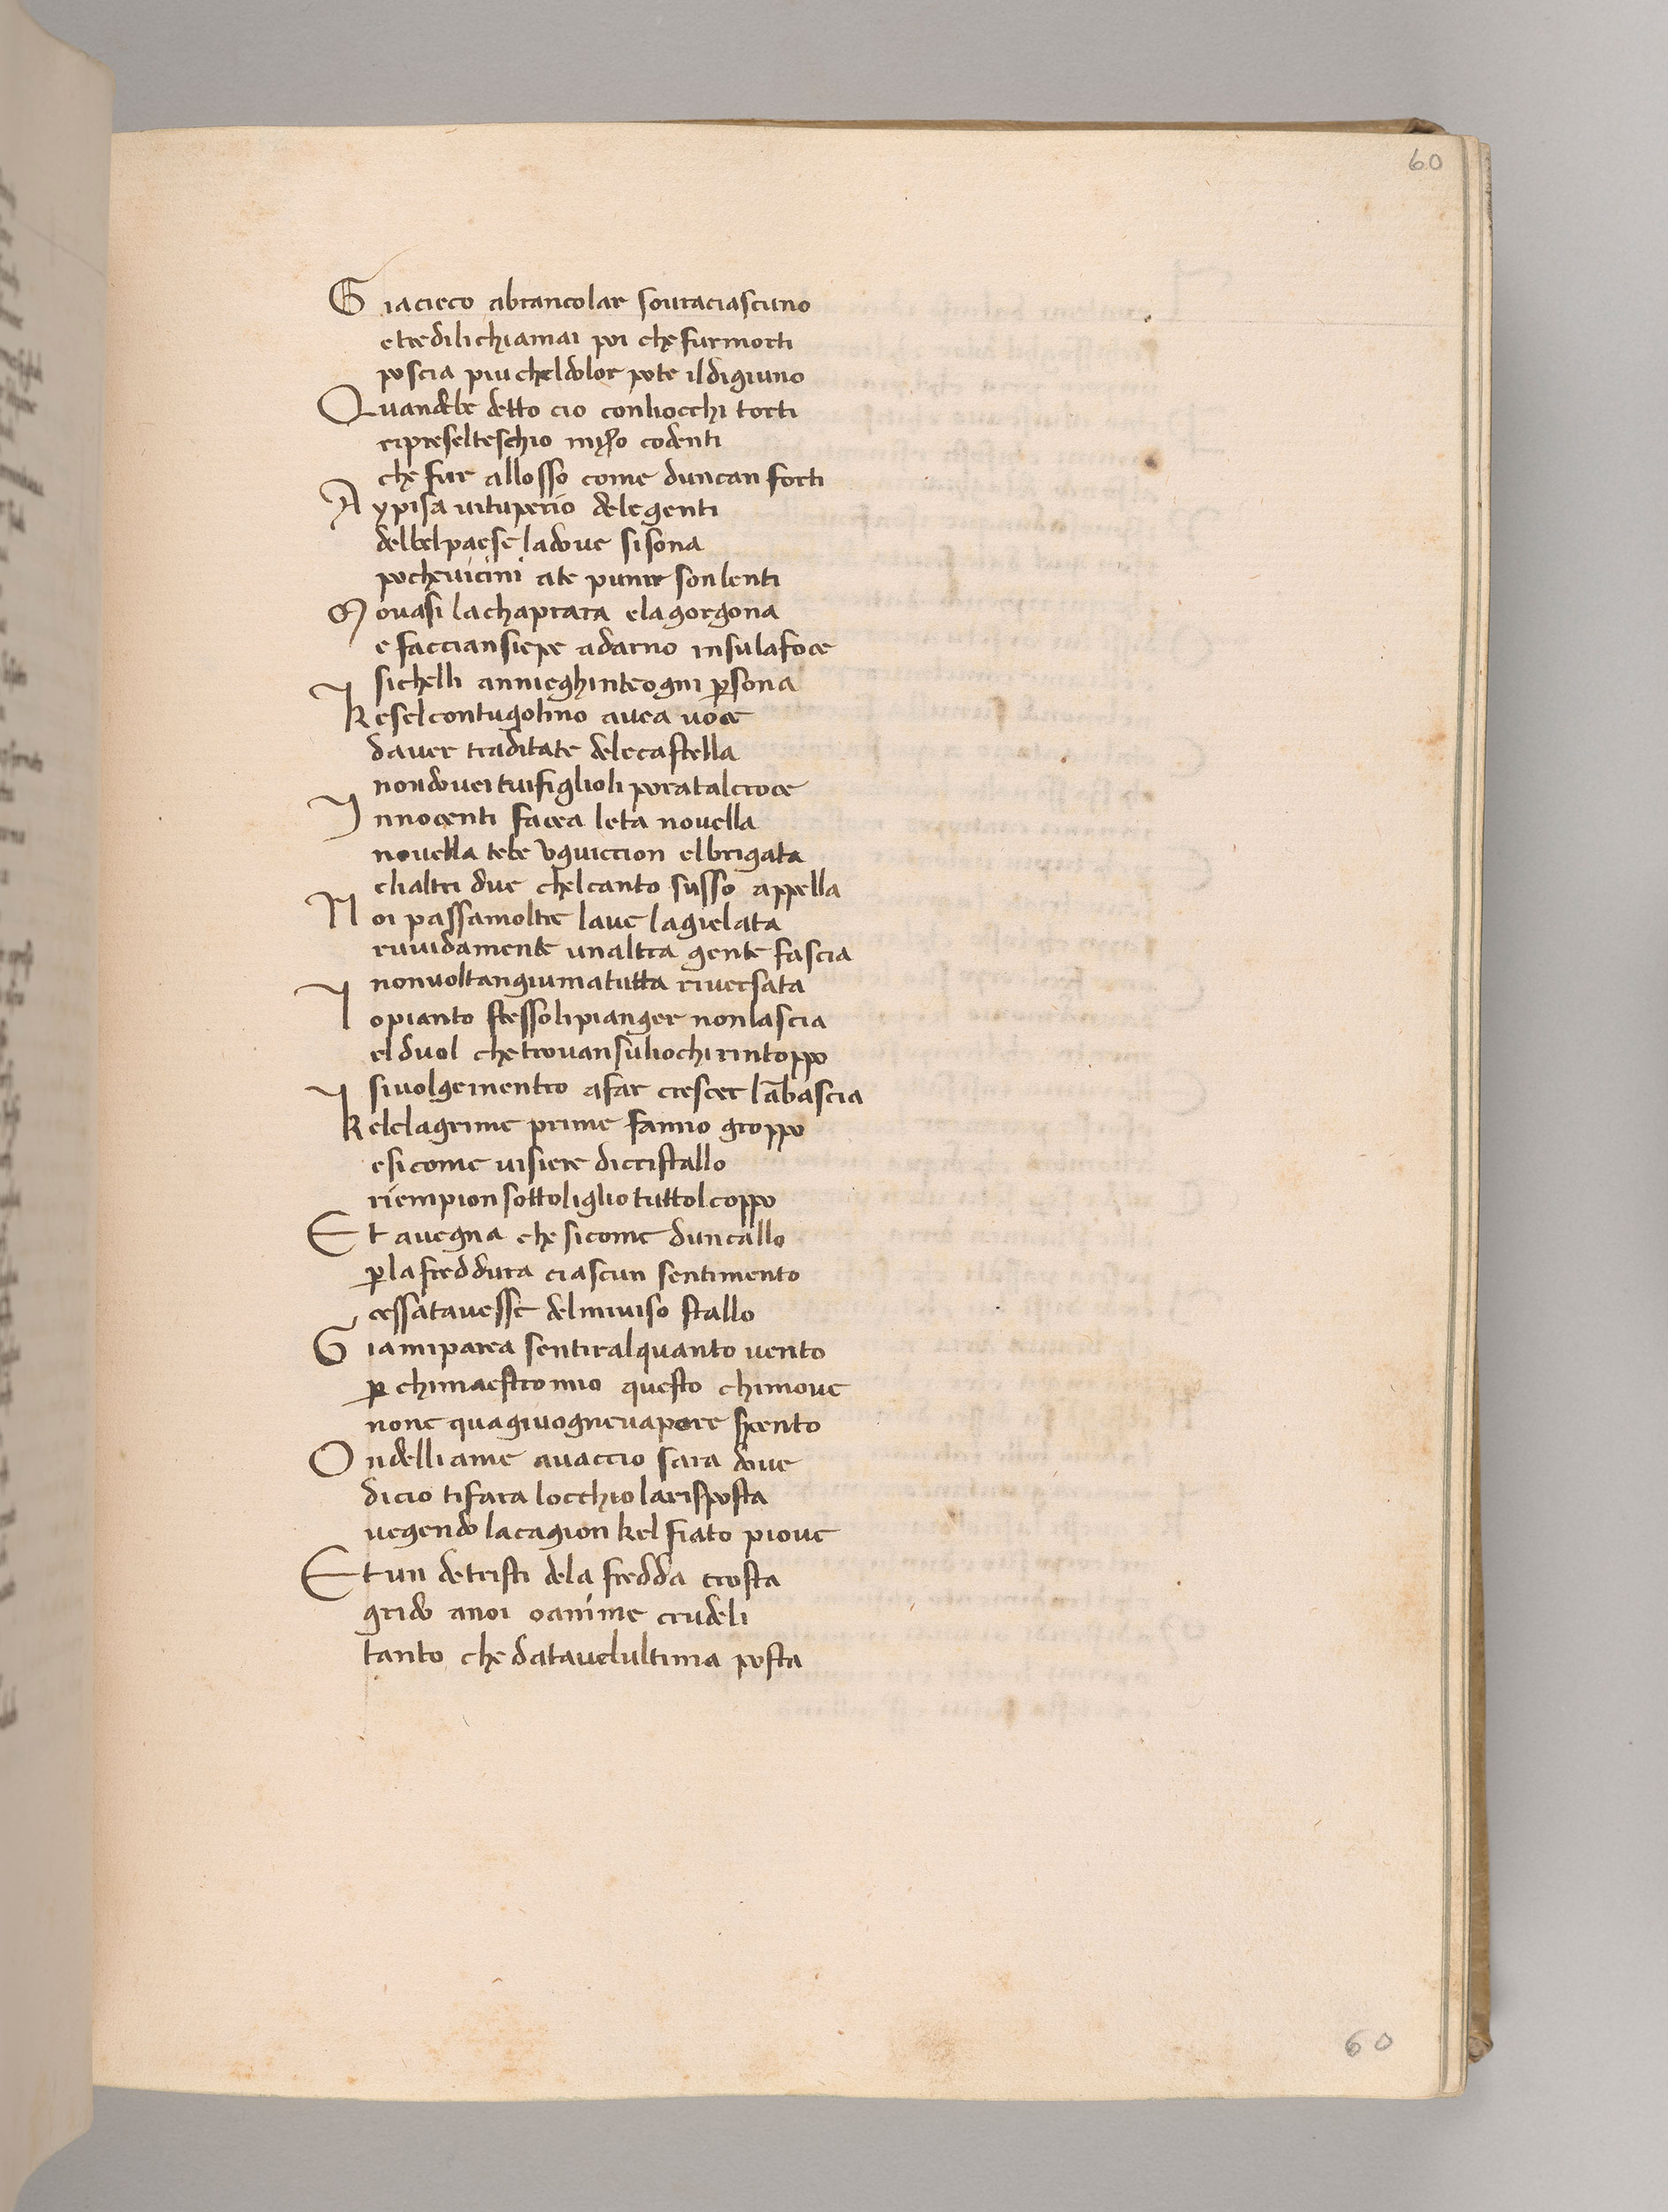 60
Giacieco abrancolar souraciascuno
etredilichiamai poi che furmorti
poscia piu cheldolor pote ildigiuno
Quandebe detto cio conliocchi torti
ripreselteschio codenti
che fur allosso come duncan forti
Aypisa uituperio delegenti
delbelpaese ladoue sisona
pocheuicini ate punir sonlenti
Mouasi lachaprara elagorgona
e facciansiepe adarno insulafoce
sichelli annieghinteogni psona
Keselcontugolino auea uoce
dauer traditate delecastella
nondouei tuifiglioli poratalcroce
Innocenti facea leta nouella
nouella tebe vguiccion elbrigata
elialtri due chelcanto susso appella
Noi passamoltre laue lagielata
ruuidamente unaltra gente fascia
nonuoltangiumatutta riuersata
Iopianto stessolipianger nonlascia
elduol chetrouansuliochi rintoppo
siuolgementro afar crescer lābascia
Kelelagrime prime fanno groppo
esicome uisiere dicristallo
riempion sottoliglio tuttolcoppo
Et auegna che sicome duncallo
pla freddura ciascun sentimento
cessatauesse delmiuiso stallo
Giamiparea sentiralquanto uento
p chimaestromio questo chimoue
none quagiuogneuapore spento
Ondelliame auaccio sara doue
dicio tifara locchiolarisposta
uegendo lacagion kel fiato pioue
Etun detristi dela fredda crosta
grido anoi oanime crudeli
tanto che datauelultima posta
60